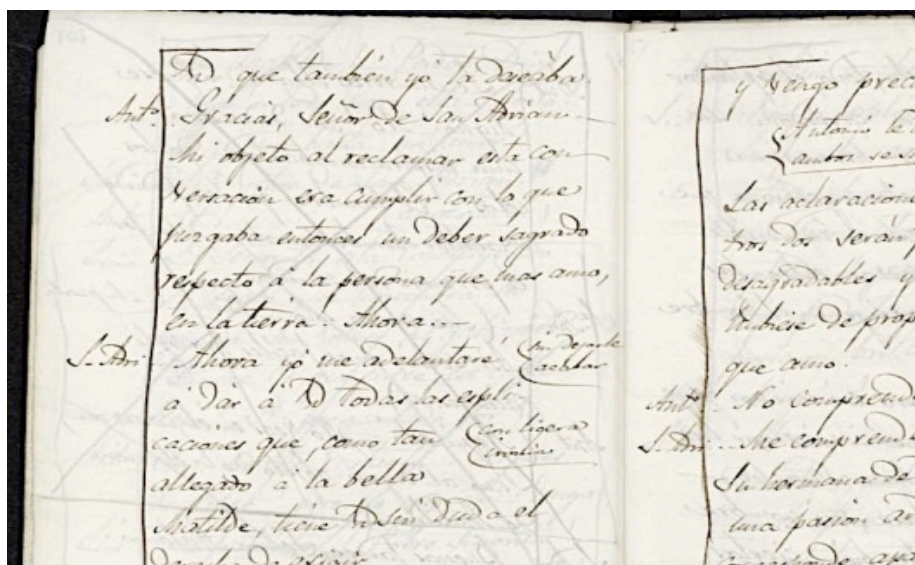 VD que también yo la deseaba.
Antº. Gracias, Señor de San Adrian...
Mi objeto al reclamar esta con
versación era cumplir con lo que
juzgaba entonces un deber sagrado
respecto á la persona que mas amo,
en la tierra. Ahora...
S. Adri Ahora yo me adelantaré (sin dejarle
acabar
á dár á VD todas las espli
caciones que, como tan (con ligera
ironía
allegado á la bella
Matilde, tiene VD sin duda el
derecho de exigir
y vengo prec
Antonio le
ambos se
Las aclaracion
tros dos serán
desagradables y
hubiese de prop
que amo.
Antº. No comprend
S. Adri... Me comprend
Su hermana de
una pasion